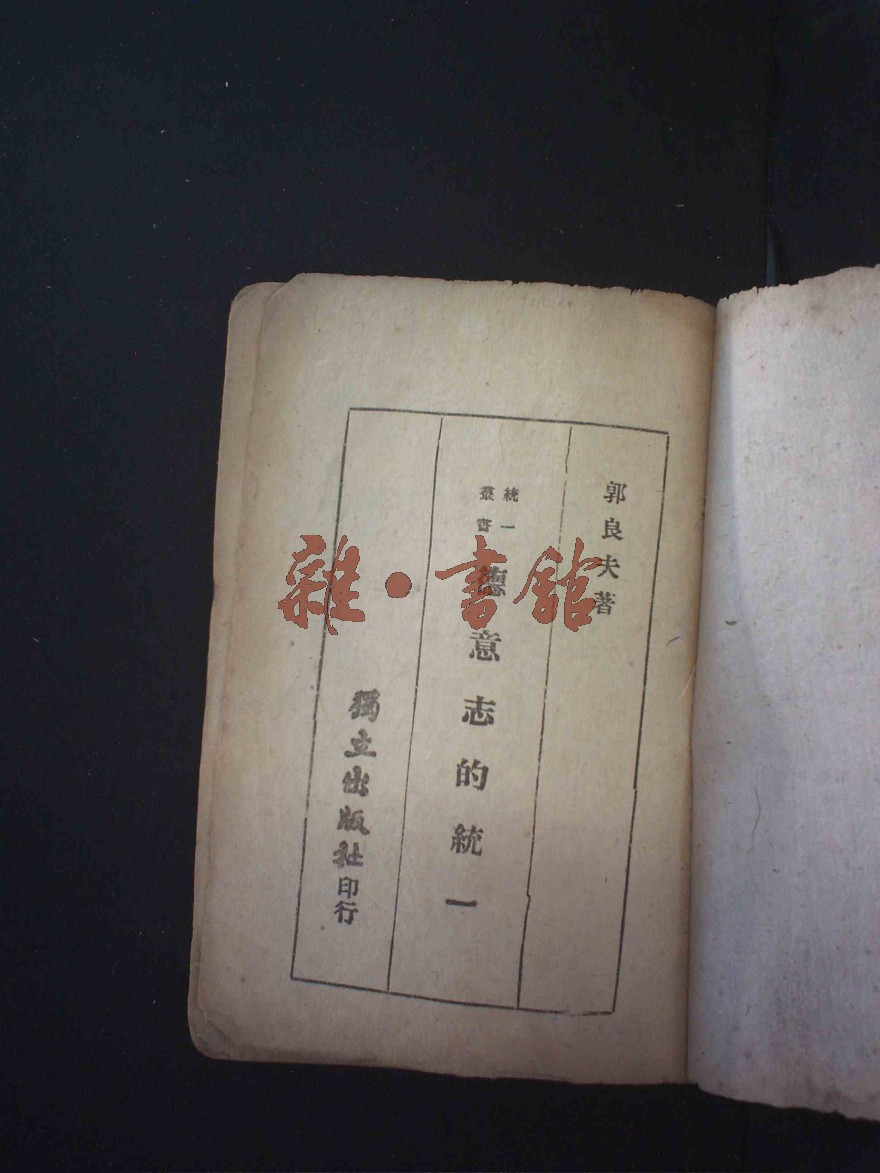 郭良夫著
統一
叢書
德意志的統一
獨立出版社印行
雜·書館